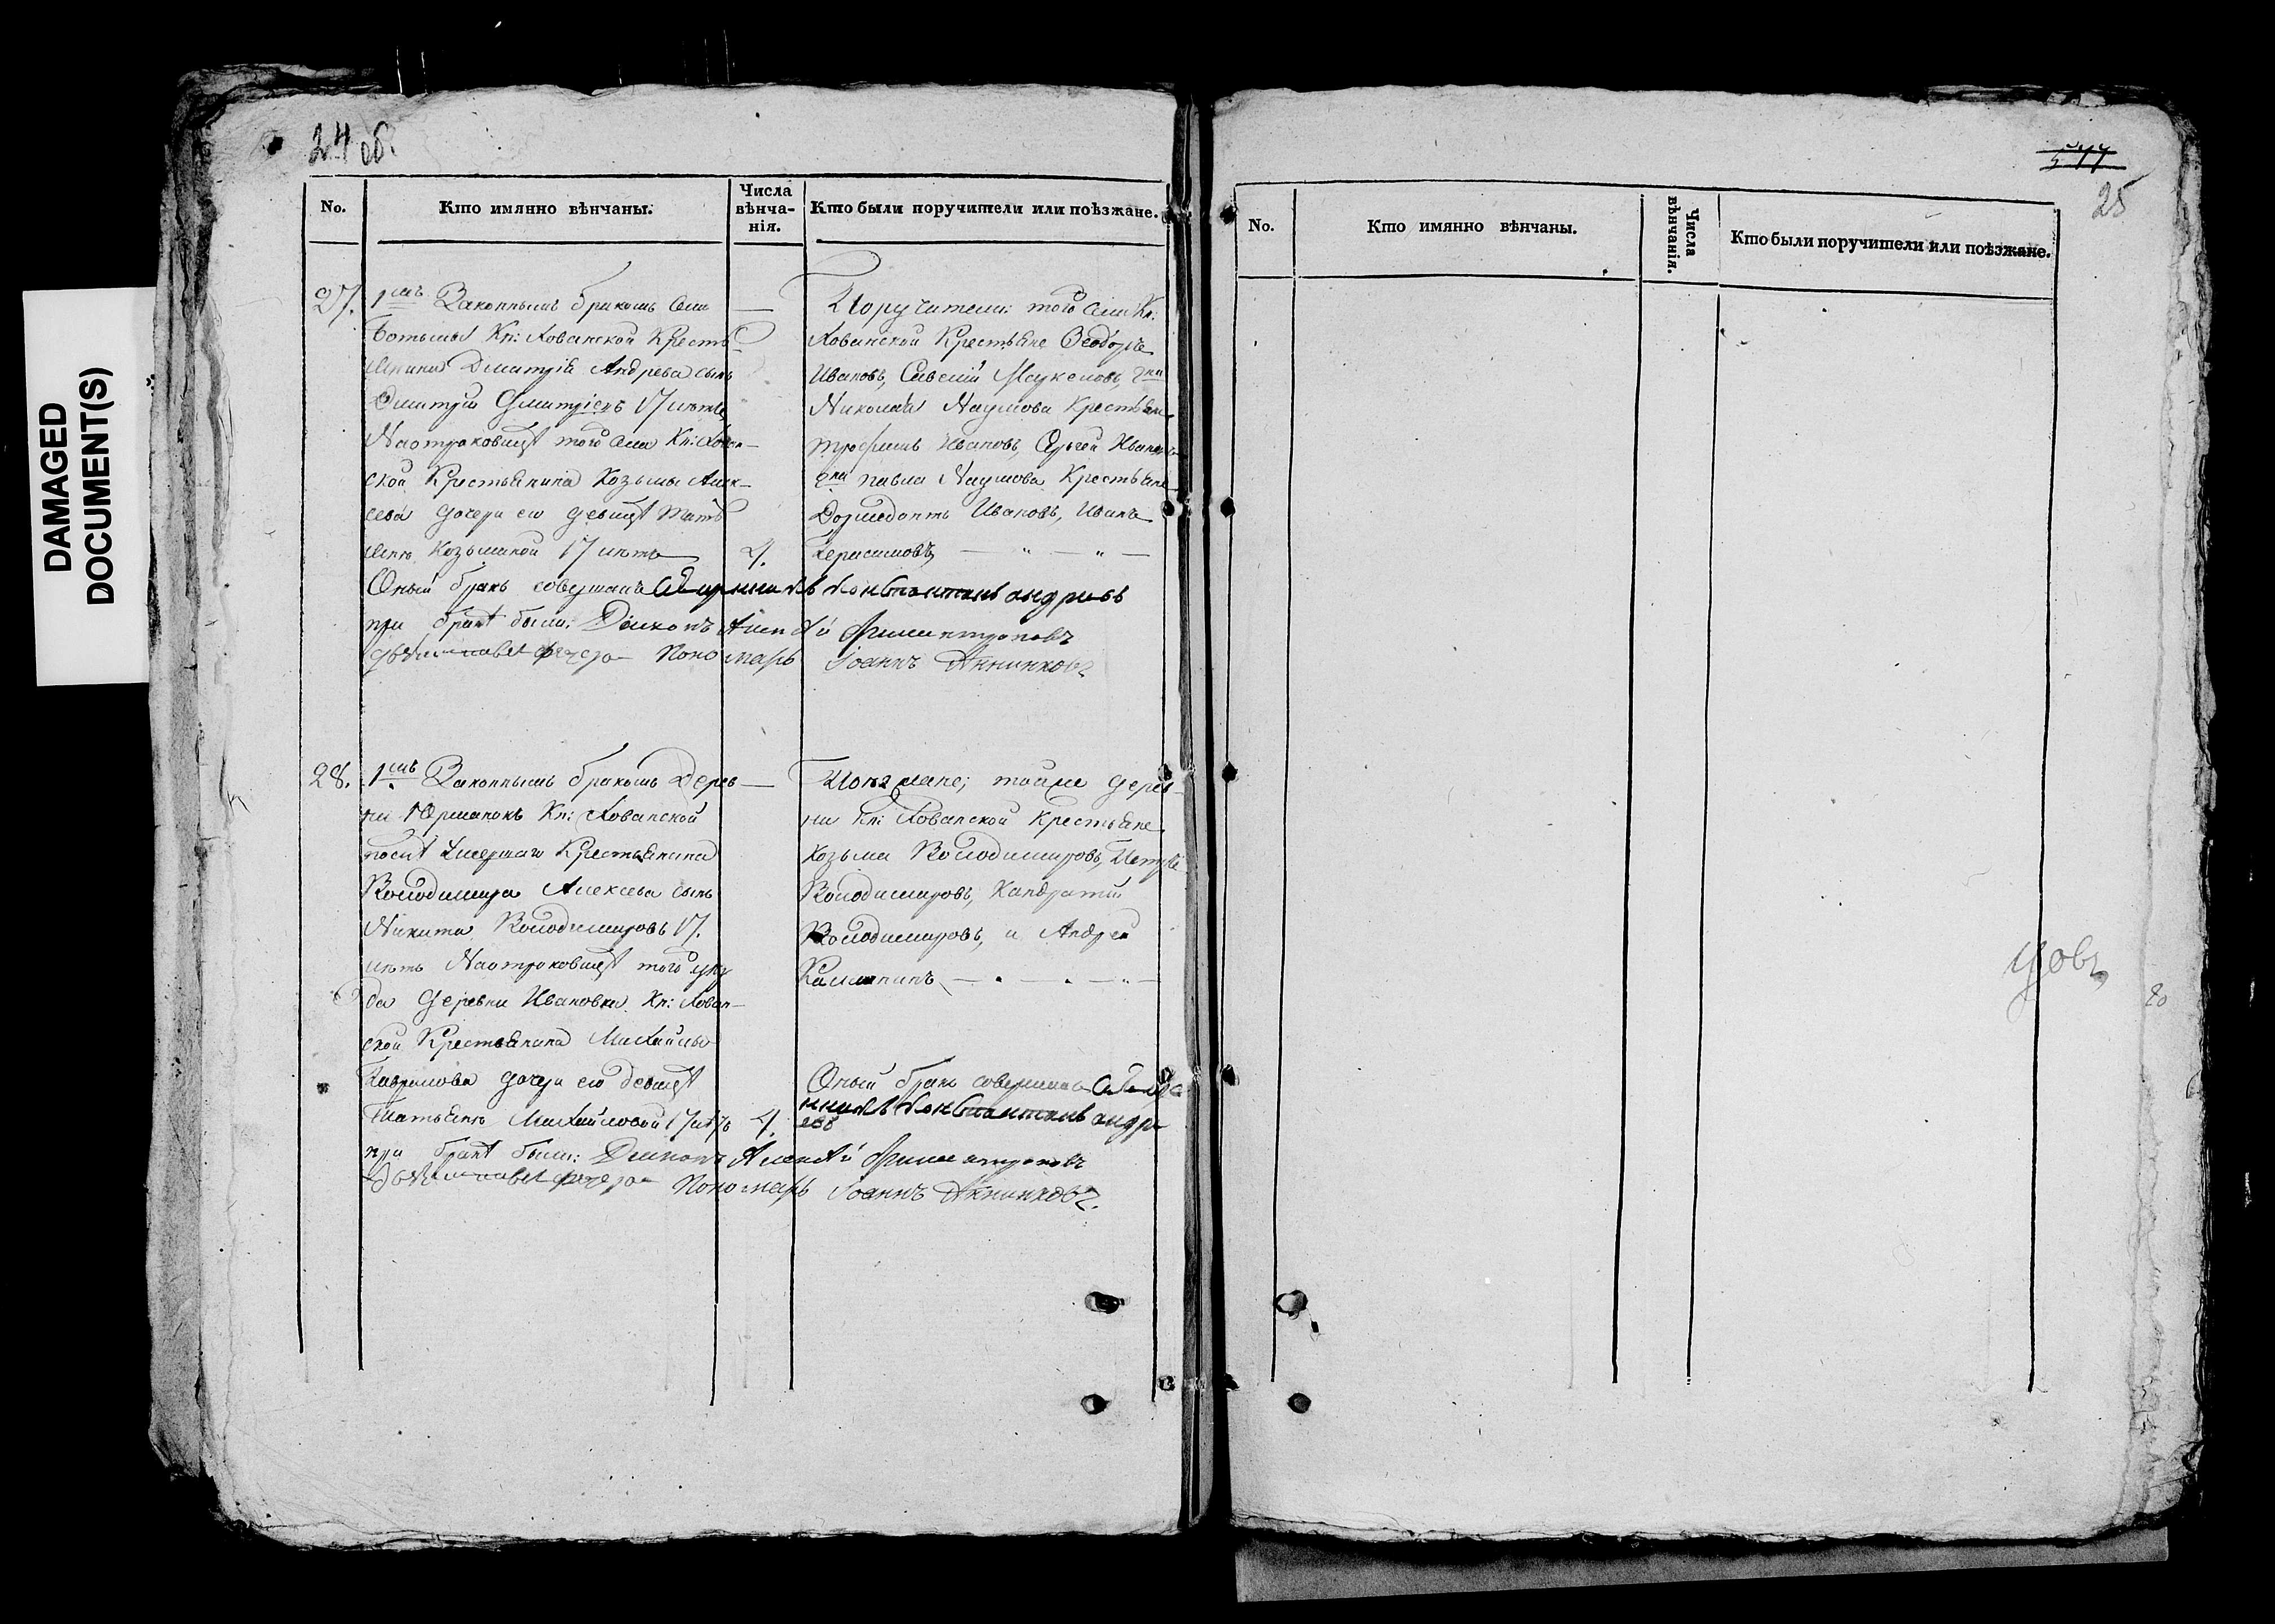 DAMAGED
DOCUMENT(S)
24 об.
No.
Кто имянно вѣнчаны.
Числа
вѣнча-
нія.
Кто были поручители или поѣзжане.
27.
1мъ Законнымъ бракомъ села
Кн: Хованской Кресть-
янина Димитрія Андрева сынъ
Дмитрій 17 лѣтъ
На отроковицѣ того села Кн: Хован-
ской Крестьянина Козьмы Алек-
сева дочери ево девицѣ Тать
яне Козьминой 17 лѣтъ
4.
Поручители: того села Кн:
Хованской Крестьяне Ѳеодоръ
Ивановъ, Савелій
Николая Наумова Крестьяне
Трофимъ Ивановъ, Сергей Ивановъ
Павла Наумова Крестьяне
Дормедонтъ Ивановъ, Иванъ
Герасимовъ
Оный бракъ совершалъ Священникъ Константинъ Андреевъ
при бракѣ были: Діаконъ Алексѣй Филантроповъ
Пономарь Іоаннъ Анненковъ
28.
1мъ Законнымъ бракомъ Дерев-
ни Юрманокъ Кн: Хованской
после умершаго Крестьянина
Володимира Алексева сынъ
Никита Володимировъ 17.
лѣтъ На отроковицѣ того уез
да Деревни Ивановки Кн: Хован-
ской Крестьянина Михайлы
Гаврилова дочери ево девицѣ
Татьяне Михайловой 17 лѣтъ
4.
Поѣзжане; тойже дерев-
ни Кн: Хованской Крестьяне
Козьма Володимировъ, Петръ
Володимировъ, Кандратій
Володимировъ, и Андрей
Калининъ
Оный бракъ совершалъ Свяще
нникъ Константинъ Андре
евъ
при бракѣ были: Діаконъ Алексѣй Филантроповъ
Пономарь Іоаннъ Анненковъ.
25
No.
Кто имянно вѣнчаны.
Числа
вѣнчанія.
Кто были поручители или поѣзжане.